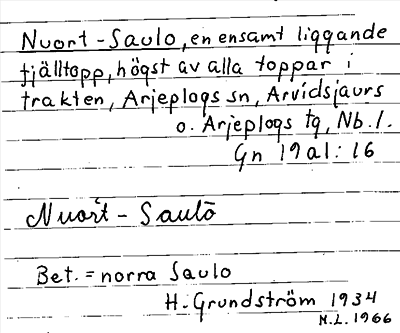 Nuort-Saulo, en ensamt liggande
fjälltopp, högst av alla toppar i
trakten, Arjeplogs sn, Arvidsjaurs
o. Arjeplogs tg, Nb. l.
Gn 19a1: 16
Nuort - Saulō
Bet. = norra Saulo
H. Grundström 1934
N.L. 1966